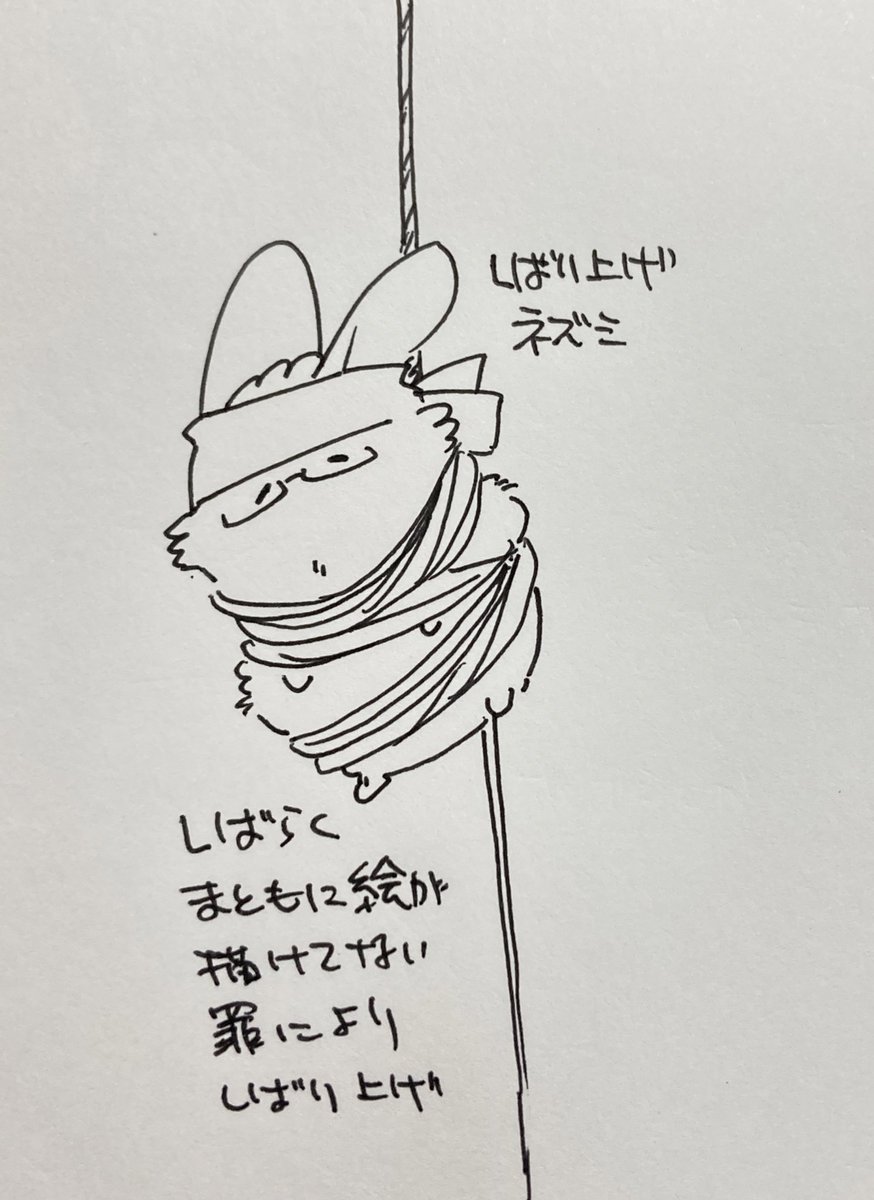 しばり上げ
ネズミ
しばらく
まともに絵が
描けてない
罪により
しばり上げ